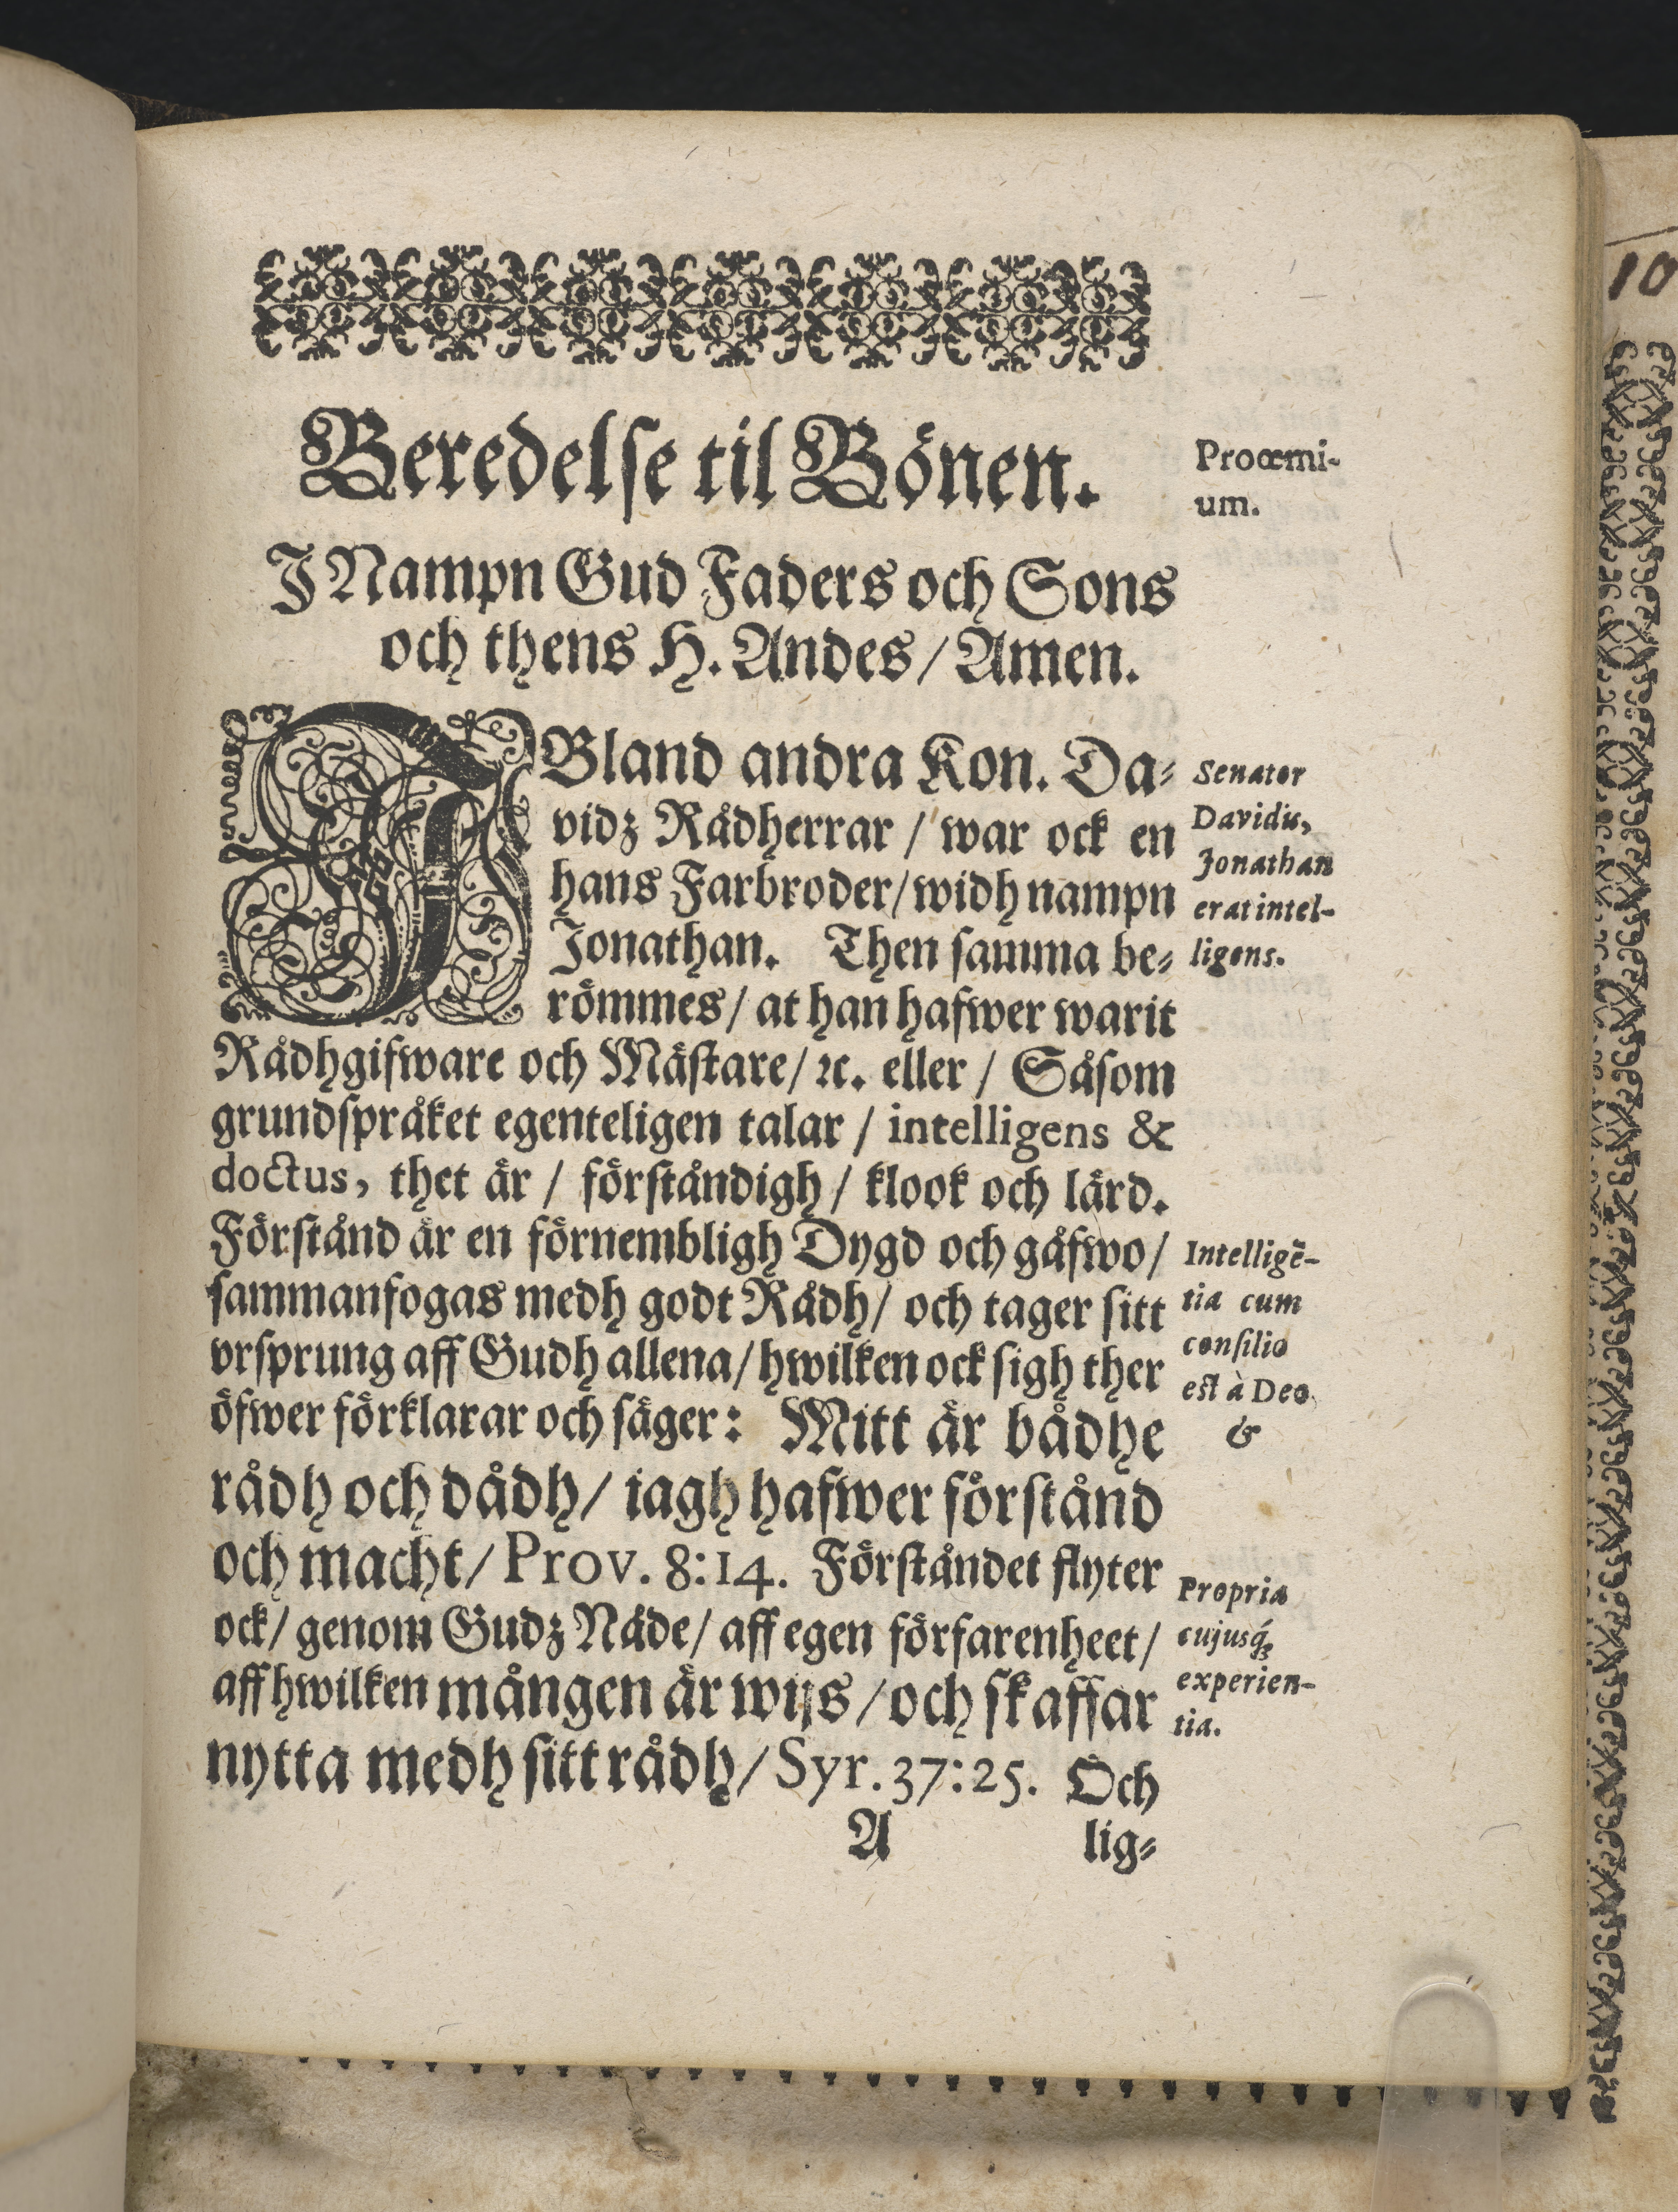 Beredelse til Bönen.
Proœmi-
um.
J Nampn Gud Faders och Sons
och thens H. Andes/ Amen.
JBland andra Kon. Da-
vidz Rådherrar / war ock en
hans Farbroder/ widh nampn
Jonathan. Then samma be-
römmes/ at han hafwer warit
Rådhgifware och Mästare/ ꝛc. eller / Såsom
grundspråket egenteligen talar / intelligens &
doctus, thet är / förståndigh / klook och lärd.
Senator
Davidis,
Jonathan
erat intel-
ligens.
Förstånd är en förnembligh Dygd och gåfwo/
sammanfogas medh godt Rådh/ och tager sitt
vrsprung aff Gudh allena/ hwilken ock sigh ther
öfwer förklarar och säger: Mitt är bådhe
rådh och dådh/ iagh hafwer förstånd
och macht/ Prov. 8:14. Förståndet flyter
ock/ genom Gudz Nåde/ aff egen förfarenheet/
aff hwilken mången är wijs / och skaffar
nytta medh sitt rådh/ Syr. 37:25. Och
Intelligē-
tia cum
consilio
est à Deo
&
Propria
cujusq́;
experien-
tia.
A
lig-
10